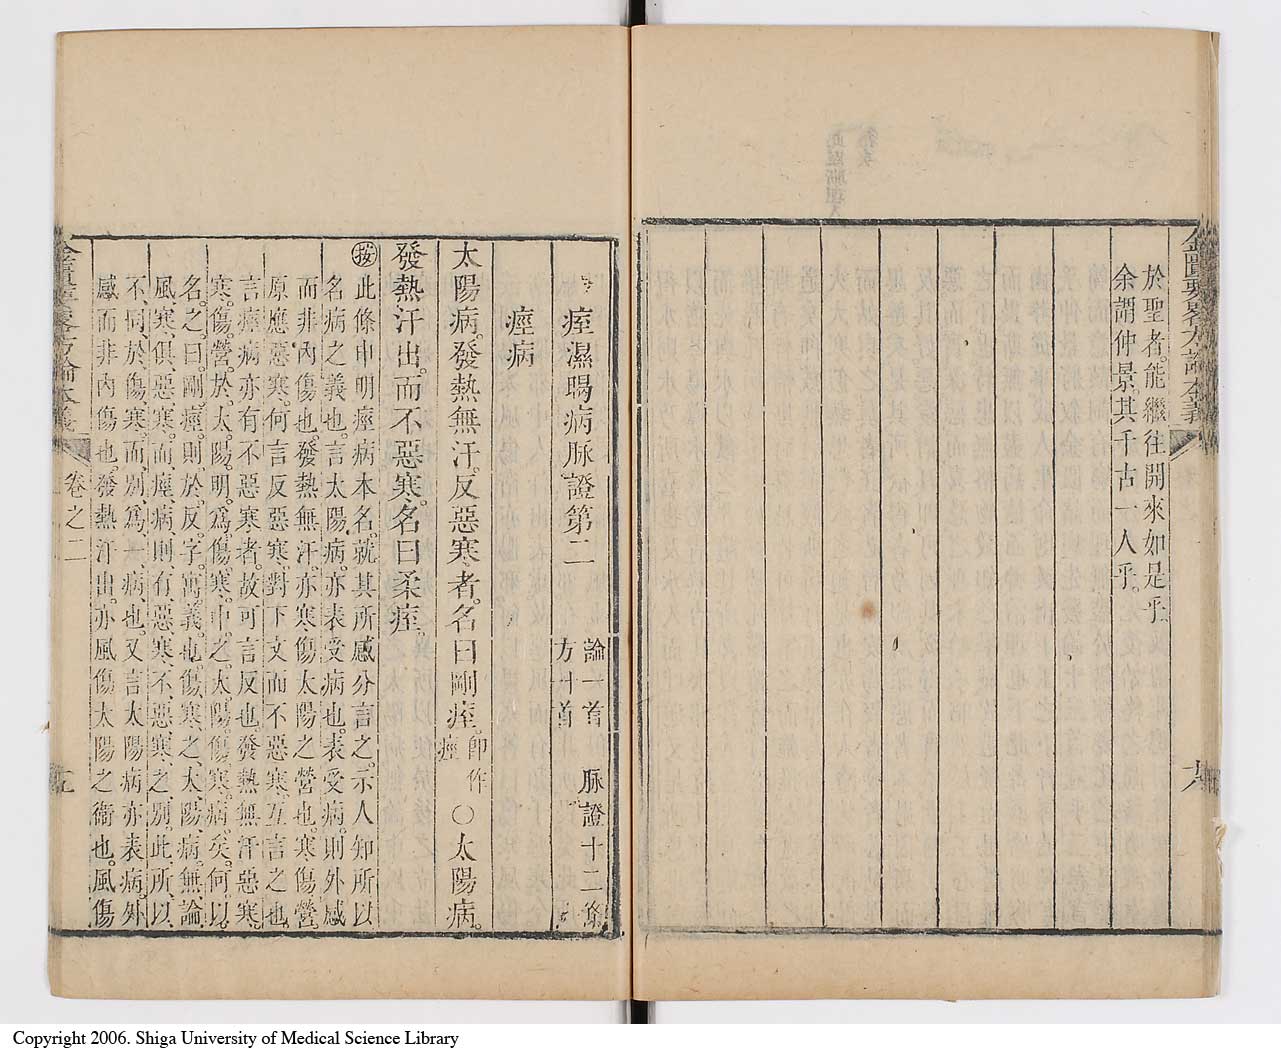 於聖者。能繼往開來如是乎。
余謂仲景。其千古一人乎。
痙濕暍病脉證第二
論一首 脉證十二條
方十首
痙病
太陽病。發熱無汗。反惡寒者。名曰剛痙。卽作痙○太陽病。
發熱汗出。而不惡寒。名曰柔痙。
按此條申明痙病本名。就其所感分言之。示人知所以
名病之義也。言太陽病。亦表受病也。表受病。則外感
而非內傷也。發熱無汗。亦寒傷太陽之營也。寒傷營。
原應惡寒。何言反惡寒。對下文而不惡寒。互言之也。
言痙病亦有不惡寒者。故可言反也。發熱無汗惡寒。
寒。傷。營。於。太。陽。明。爲。傷。寒。中。之。太。陽。傷。寒。病。矣。何。以。
名。之。曰。剛。痙。則。於。反。字。寓。義。也。傷。寒。之。太。陽。病。無。論。
風。寒。俱。惡。寒。而。痙。病。則。有。惡。寒。不。惡。寒。之。別。此。所。以。
不。同。於。傷。寒。而。別。爲。一。病。也。又言太陽病亦表病。外
感而非內傷也。發熱汗出。亦風傷太陽之衛也。風傷
金匱要畧方論本義
卷之二